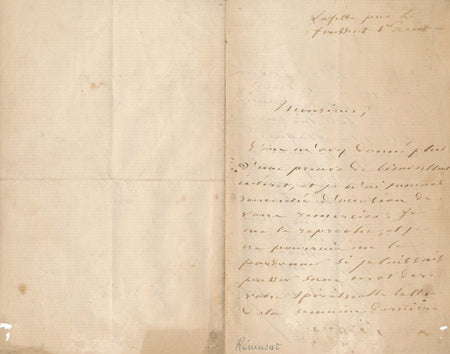 Lafitte par le
Monsieur,
Vous m'avez donné plus
d'une preuve de bienveillant
intérêt, et je n'ai jamais
rencontré d'occasion de
vous remercier. Je
me le reproche, et je
ne pourrais me le
pardonner si je laissais
passer sans mot dire
votre spirituelle lettre
de la semaine dernière
Rémusat